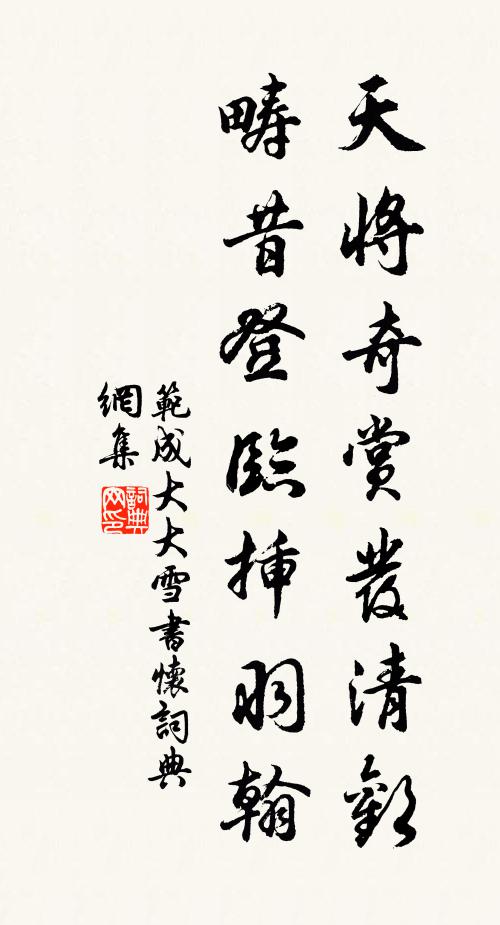 天將奇賞發清歡
疇昔登臨插羽翰
範成大大雪書懷詞典
網集
詞典網印